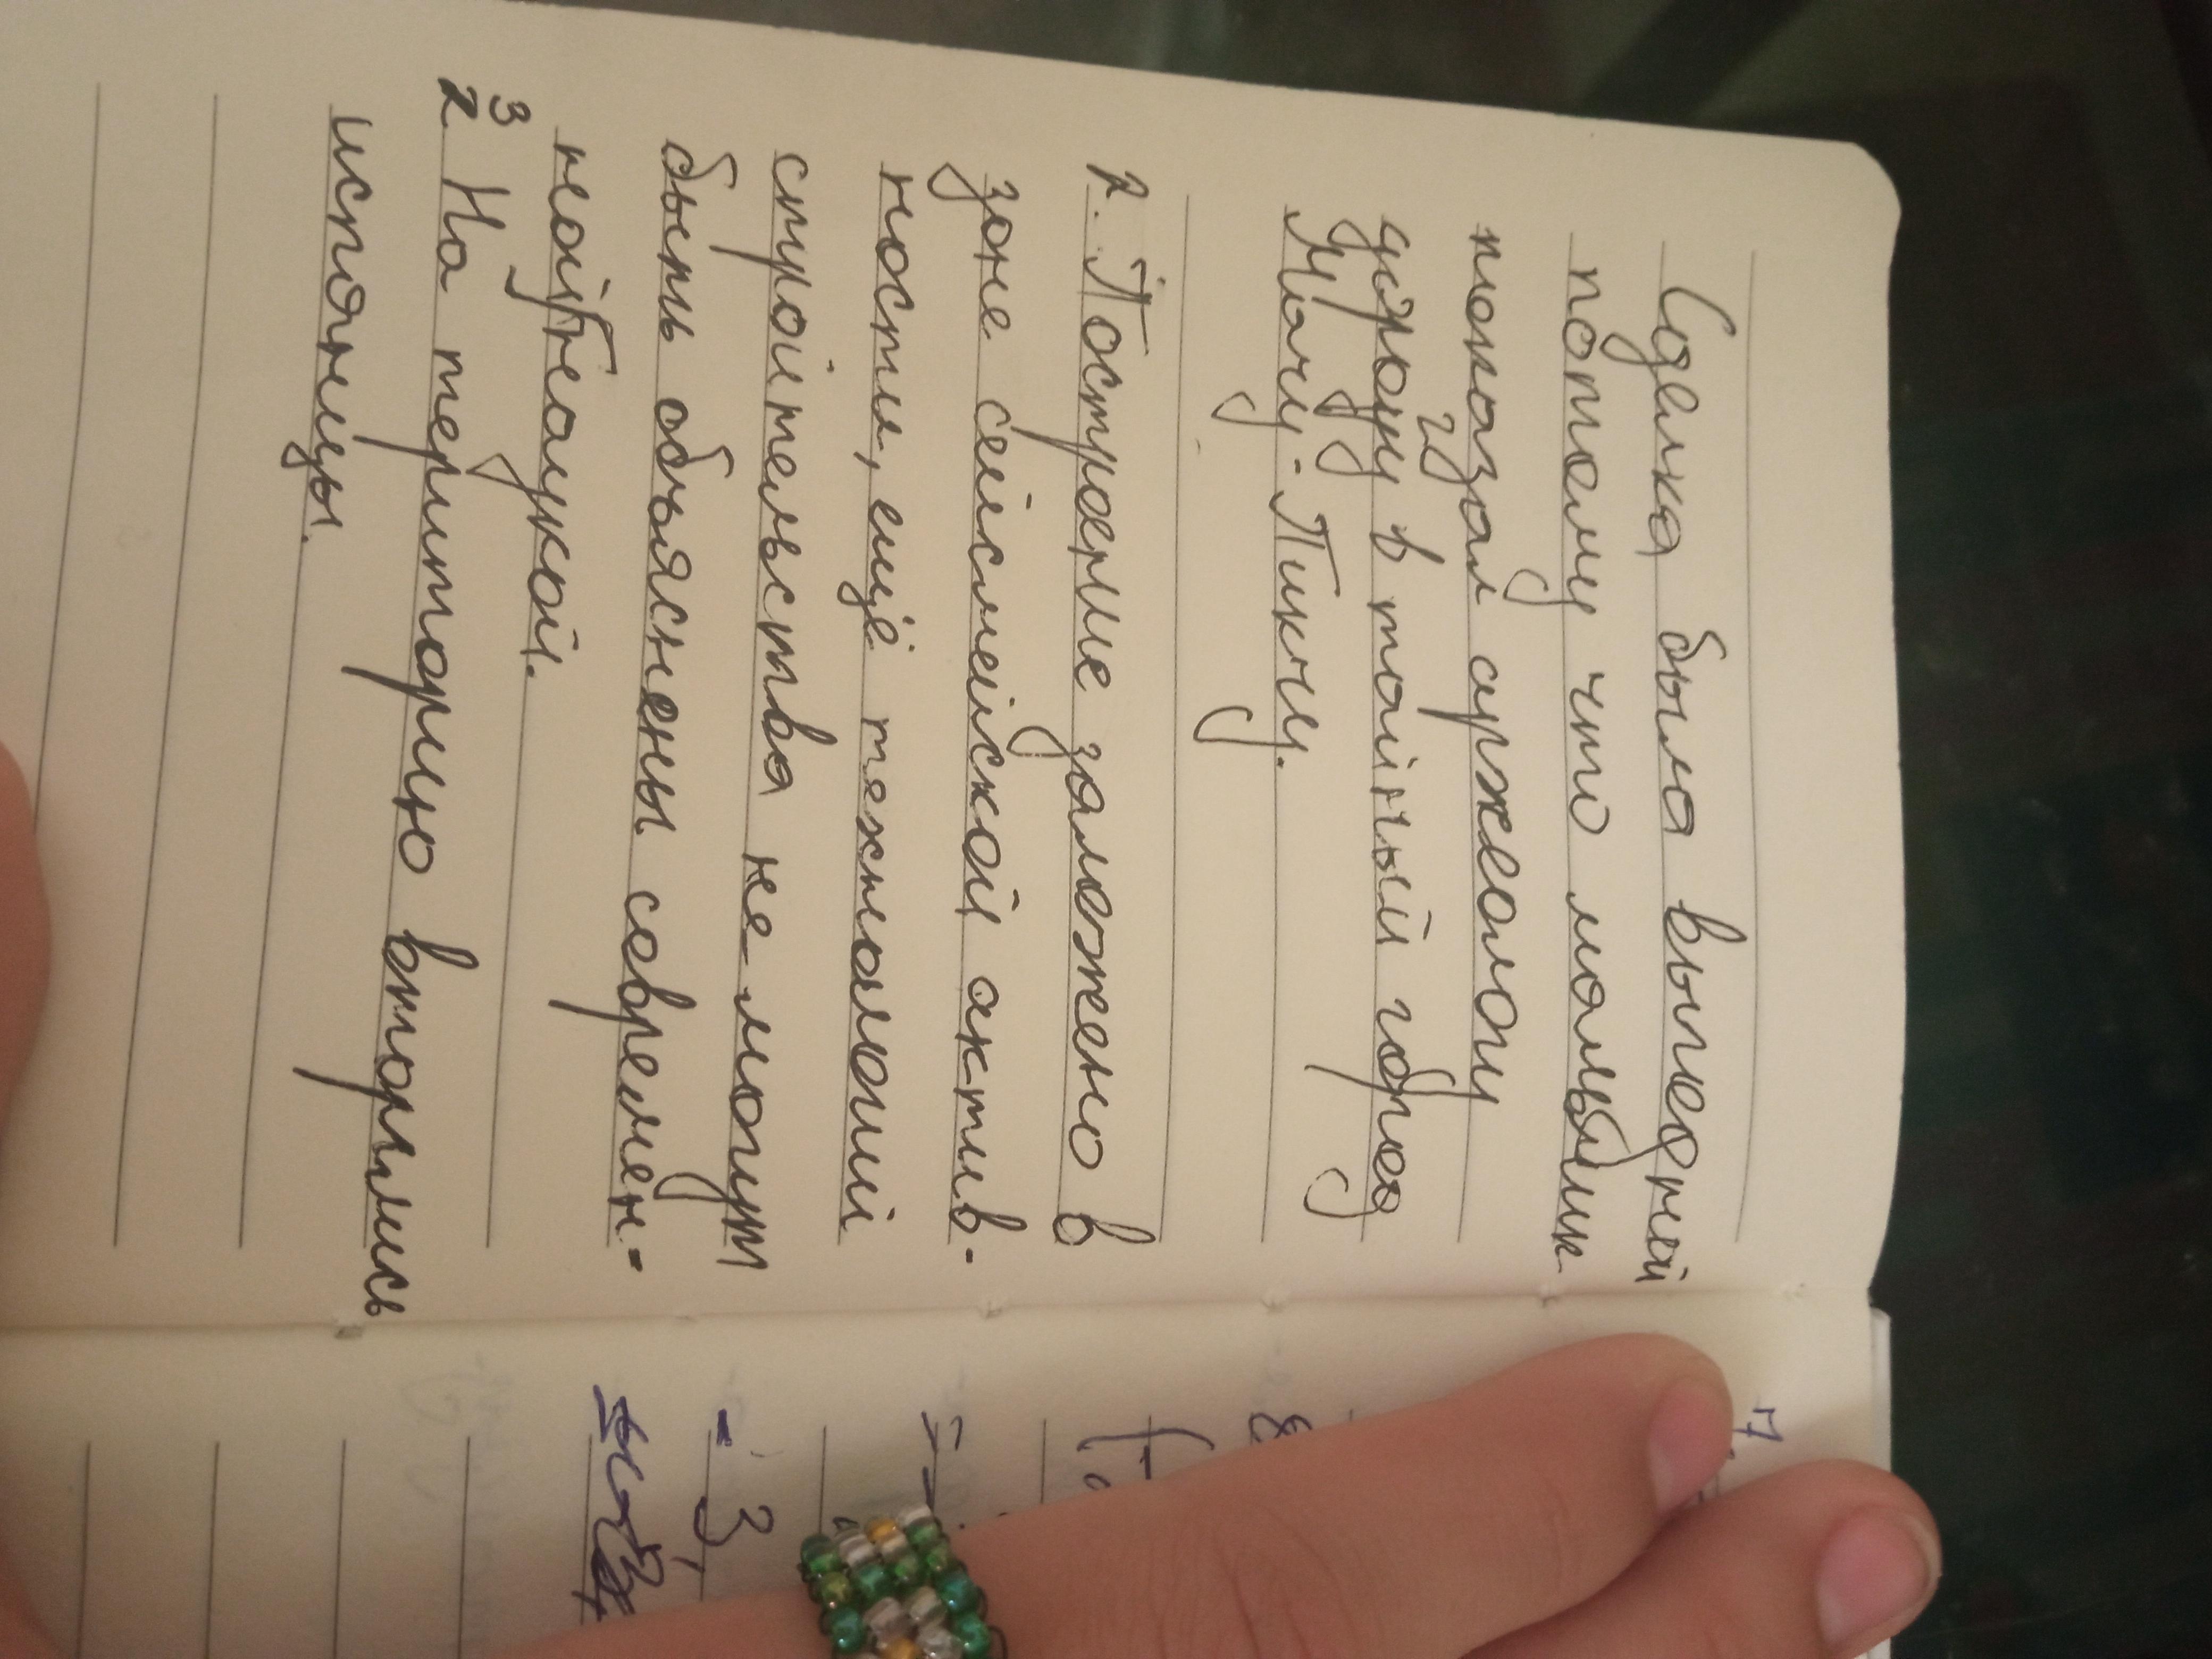 Сделка была выгодной
потому что мальчик
показал археологу
дорогу в тайный город
Мачу-Пикчу.
2. Построение заложено в
зоне сейсмейской актив-
ности, ещё технологий
строительства не могут
быть объяснены современ-
ной наукой.
3 На територию вторглись
испанцы.
7
8
- 3,